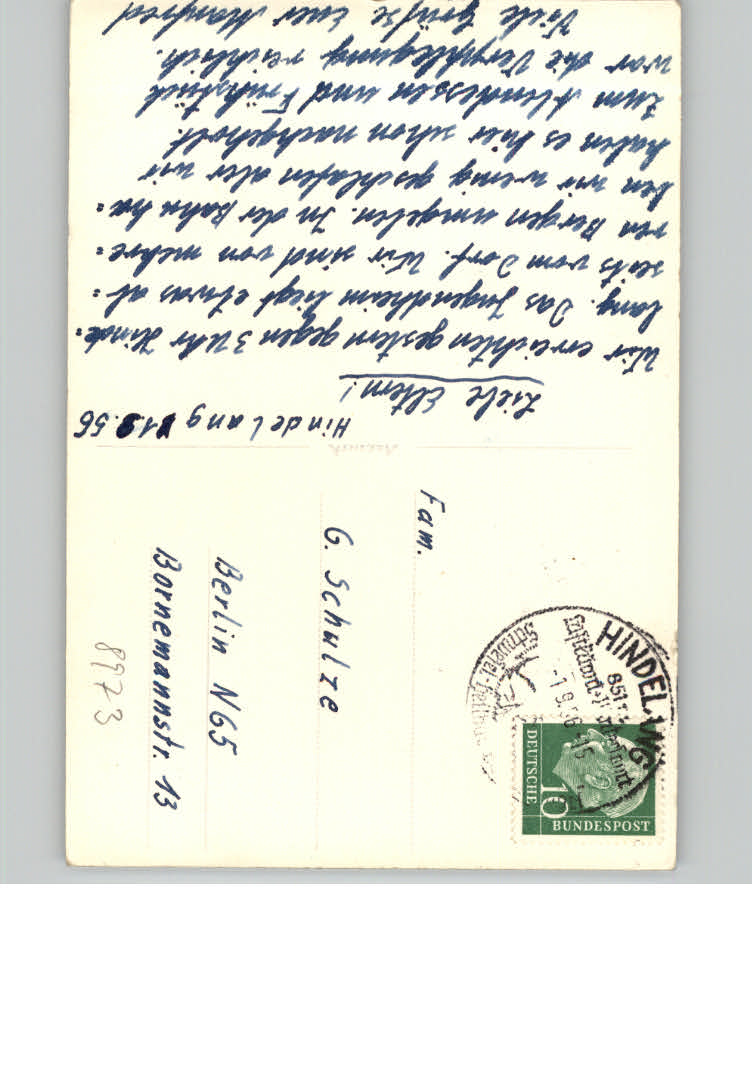 Hindelang 1.9.56
Liebe Eltern!
Wir erreichten gestern gegen 3 Uhr Hinde=
lang. Das Jugendheim liegt etwas ab=
seits vom Dorf. Wir sind von mehre=
ren Bergen umgeben. In der Bahn ha=
ben wir wenig geschlafen aber wir
haben es hier schon nachgeholt.
Zum Abendessen und Frühstück
war die Verpflegung reichlich.
Viele Grüße Euer Manfred
Fam.
G. Schulze
Berlin N65
Bornemannstr. 13
8973
HINDELANG
-1.9.56
DEUTSCHE
BUNDESPOST
10